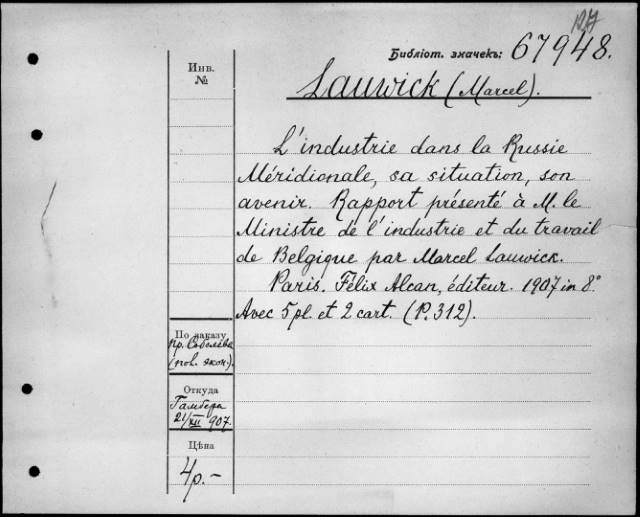 127
Библіот. значекъ: 67948.
Инв.
№
Lauwick (Marcel).
L'industrie dans la Russie
Méridionale, sa situation, son
avenir. Rapport présenté à M. le
Ministre de l'industrie et du travail
de Belgique par Marcel Lauwick.
Paris. Félix Alcan, éditeur. 1907 in 8°
Avec 5 pl. et 2 cart. (P. 312).
По заказу
пр. Соболева
(пол. экон.).
Откуда
Гамбера
21/XII 907.
Цѣна
4р.-